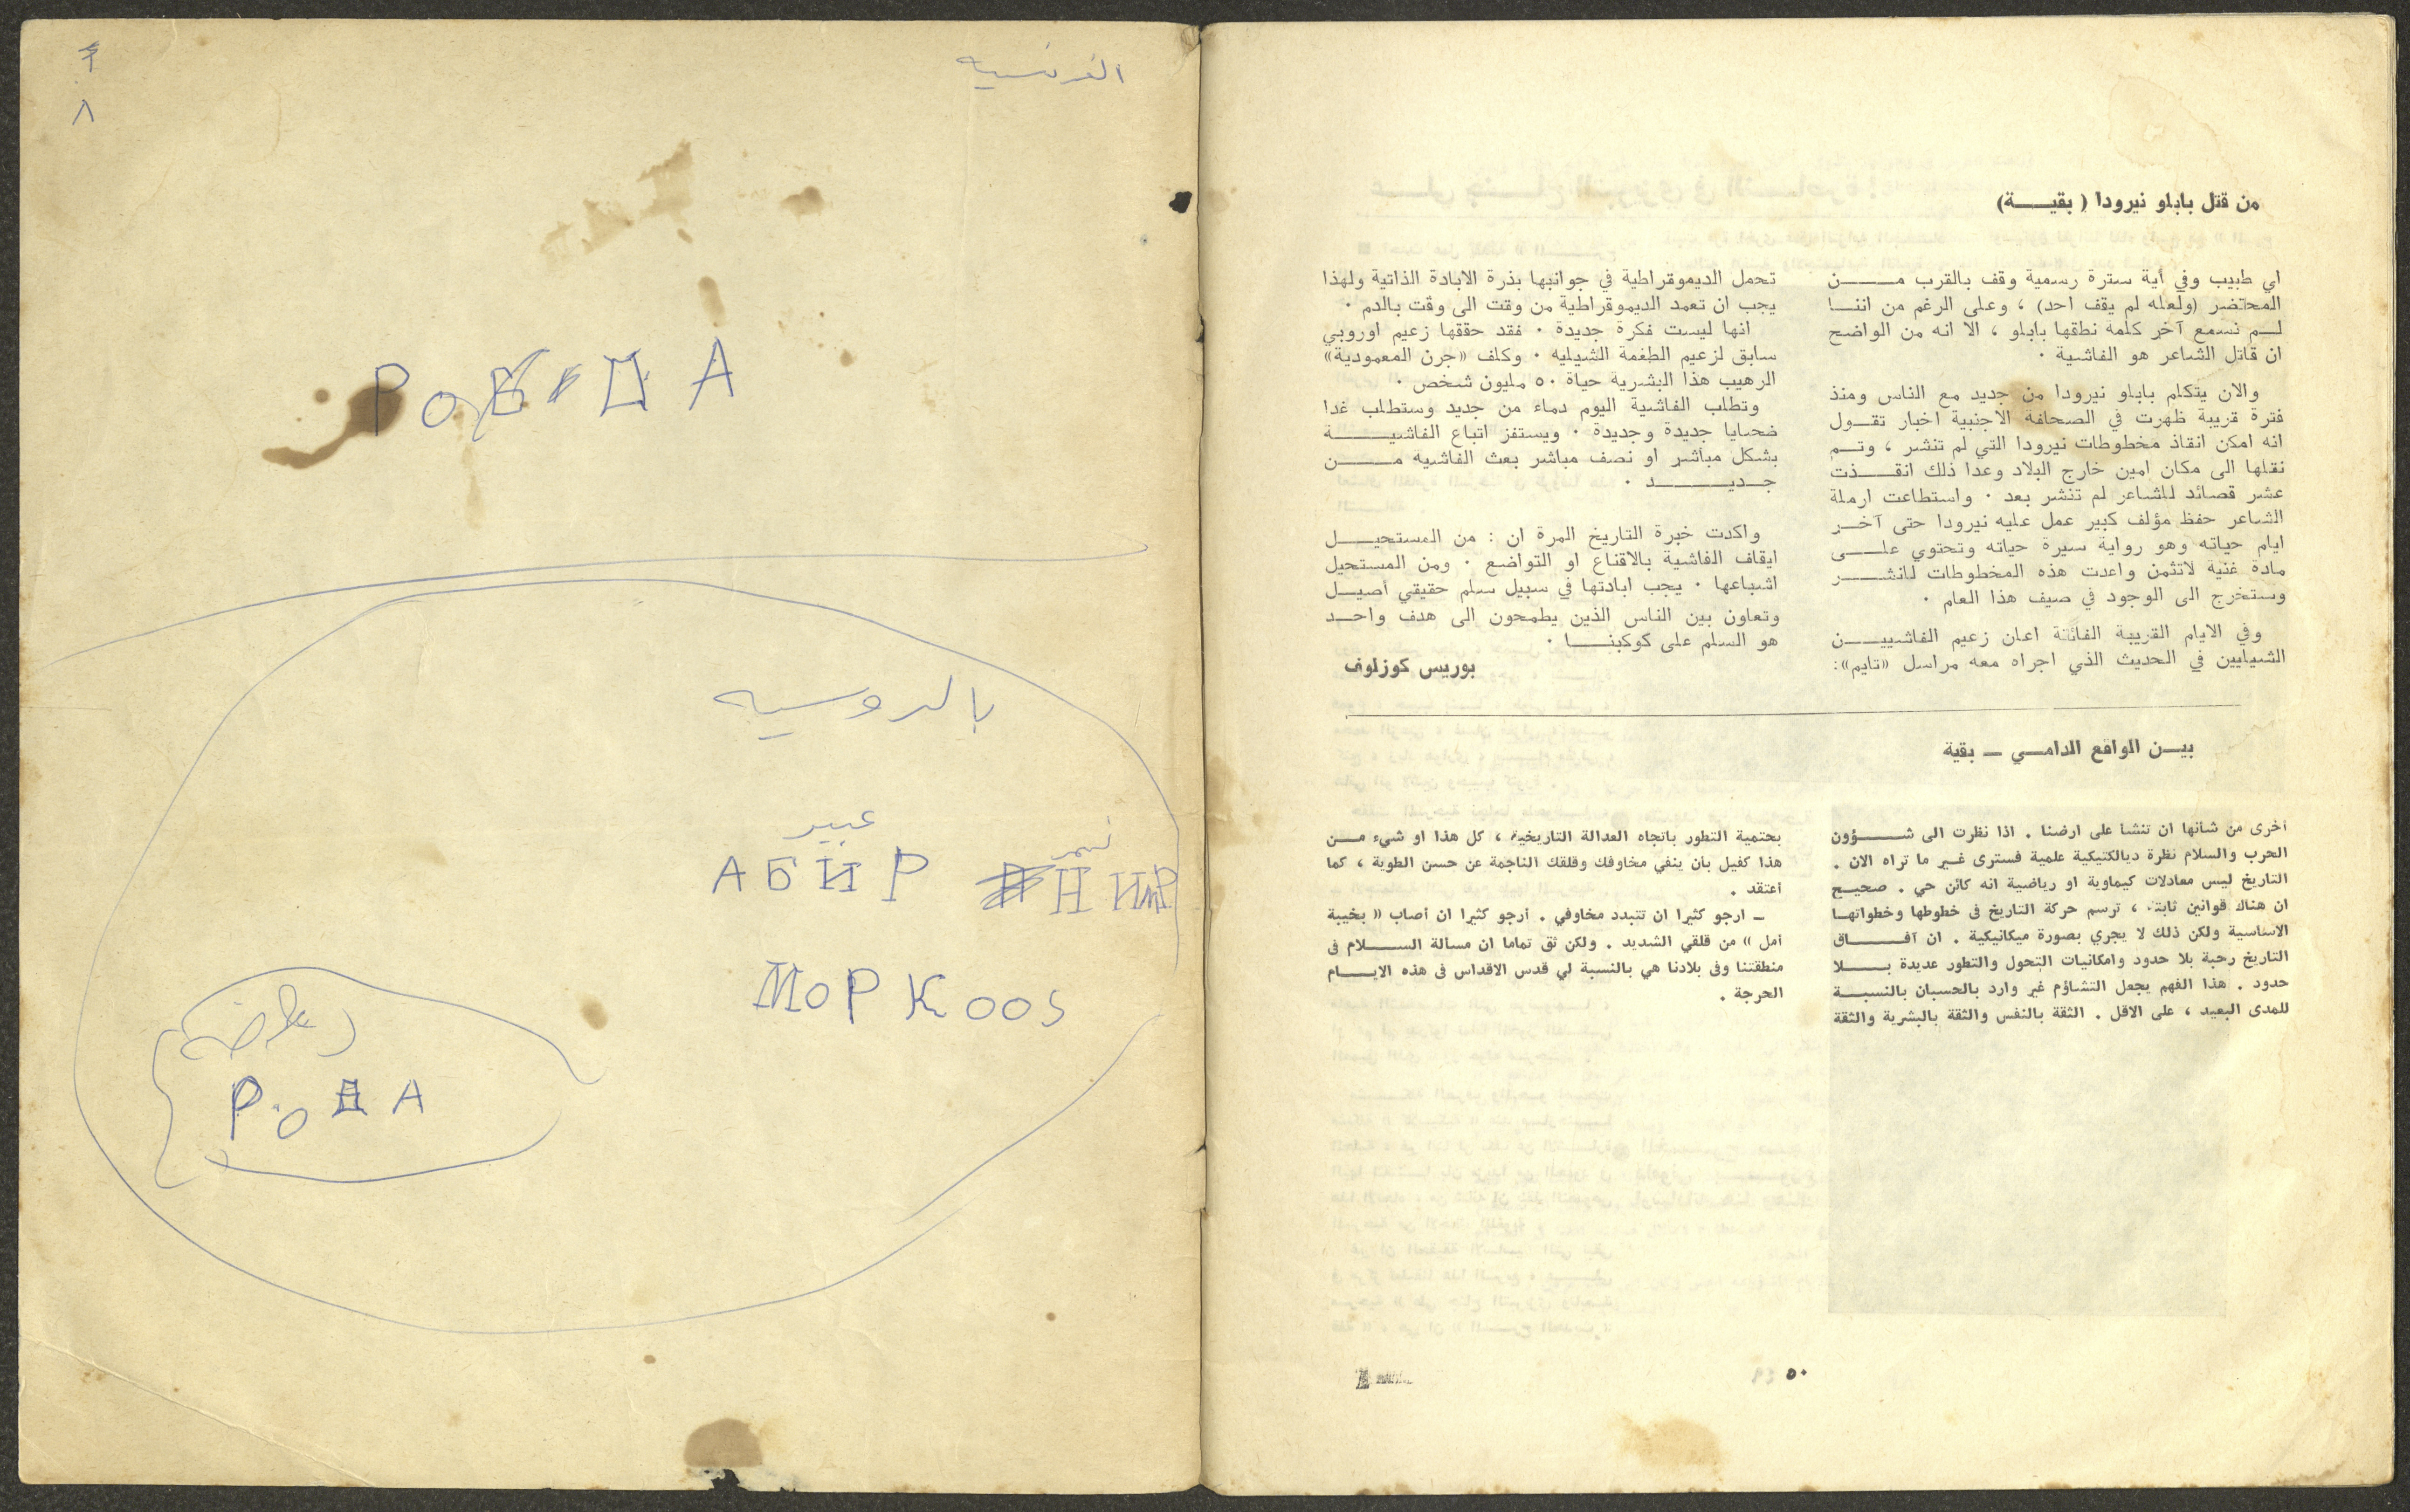 من قتل بابلو نيرودا ( بقيــــة)
اي طبيب وفي أية سترة رسمية وقف بالقرب مــــن
المحتضر (ولعله لم يقف احد) ، وعلى الرغم من اننـــا
لـــم نسمع آخر كلمة نطقها بابلو ، الا انه من الواضح
ان قاتل الشاعر هو الفاشية ·
والان يتكلم بابلو نيرودا من جديد مع الناس ومنذ
فترة قريبة ظهرت في الصحافة الاجنبية اخبار تقــول
انه امكن انقاذ مخطوطات نيرودا التي لم تنشر ، وتــم
نقلها الى مكان امين خارج البلاد وعدا ذلك انقـــذت
عشر قصائد للشاعر لم تنشر بعد · واستطاعت ارملة
الشاعر حفظ مؤلف كبير عمل عليه نيرودا حتى آخــر
ايام حياته وهو رواية سيرة حياته وتحتوي علـــى
مادة غنية لاتثمن واعدت هذه المخطوطات للنشـــر
وستخرج الى الوجود في صيف هذا العام ·
وفي الايام القريبة الفائتة اعلن زعيم الفاشييـــن
الشيليين في الحديث الذي اجراه معه مراسل «تايم»:
تحمل الديموقراطية في جوانبها بذرة الابادة الذاتية ولهذا
يجب ان تعمد الديموقراطية من وقت الى وقت بالدم ·
انها ليست فكرة جديدة · فقد حققها زعيم اوروبي
سابق لزعيم الطغمة الشيليه · وكلف «جرن المعمودية»
الرهيب هذا البشرية حياة ٥٠ مليون شخص ·
وتطلب الفاشية اليوم دماء من جديد وستطلب غدا
ضحايا جديدة وجديدة · ويستفز اتباع الفاشيـــــة
بشكل مباشر او نصف مباشر بعث الفاشية مـــــن
جــديـــــد ·
واكدت خبرة التاريخ المرة ان : من المستحيـــل
ايقاف الفاشية بالاقناع او التواضع · ومن المستحيل
اشباعها · يجب ابادتها في سبيل سلم حقيقي أصيــل
وتعاون بين الناس الذين يطمحون الى هدف واحــد
هو السلم على كوكبنـــا ·
بوريس كوزلوف
بيــن الواقع الدامــي ــ بقية
أخرى من شأنها ان تنشأ على ارضنا . اذا نظرت الى شـــؤون
الحرب والسلام نظرة ديالكتيكية علمية فسترى غــير ما تراه الان .
التاريخ ليس معادلات كيماوية او رياضية انه كائن حي . صحيــح
ان هناك قوانين ثابتة ، ترسم حركة التاريخ في خطوطها وخطواتهــا
الاساسية ولكن ذلك لا يجري بصورة ميكانيكية . ان آفـــــاق
التاريخ رحبة بلا حدود وامكانيات التحول والتطور عديدة بـــلا
حدود . هذا الفهم يجعل التشاؤم غير وارد بالحسبان بالنسبــة
للمدى البعيد ، على الاقل . الثقة بالنفس والثقة بالبشرية والثقة
بحتمية التطور باتجاه العدالة التاريخية ، كل هذا او شيء مــن
هذا كفيل بأن ينفي مخاوفك وقلقك الناجمة عن حسن الطوية ، كما
أعتقد .
ــ ارجو كثيرا ان تتبدد مخاوفي . أرجو كثيرا ان أصاب « بخيبة
أمل » من قلقي الشديد . ولكن ثق تماما ان مسألة الســـلام في
منطقتنا وفي بلادنا هي بالنسبة لي قدس الاقداس في هذه الايـــام
الحرجة .
٥٠
الفرنسيه
٨
А
بالروسيه
عبير
نمر
АБИР
Н ИМР
МОРКООS
РОДА